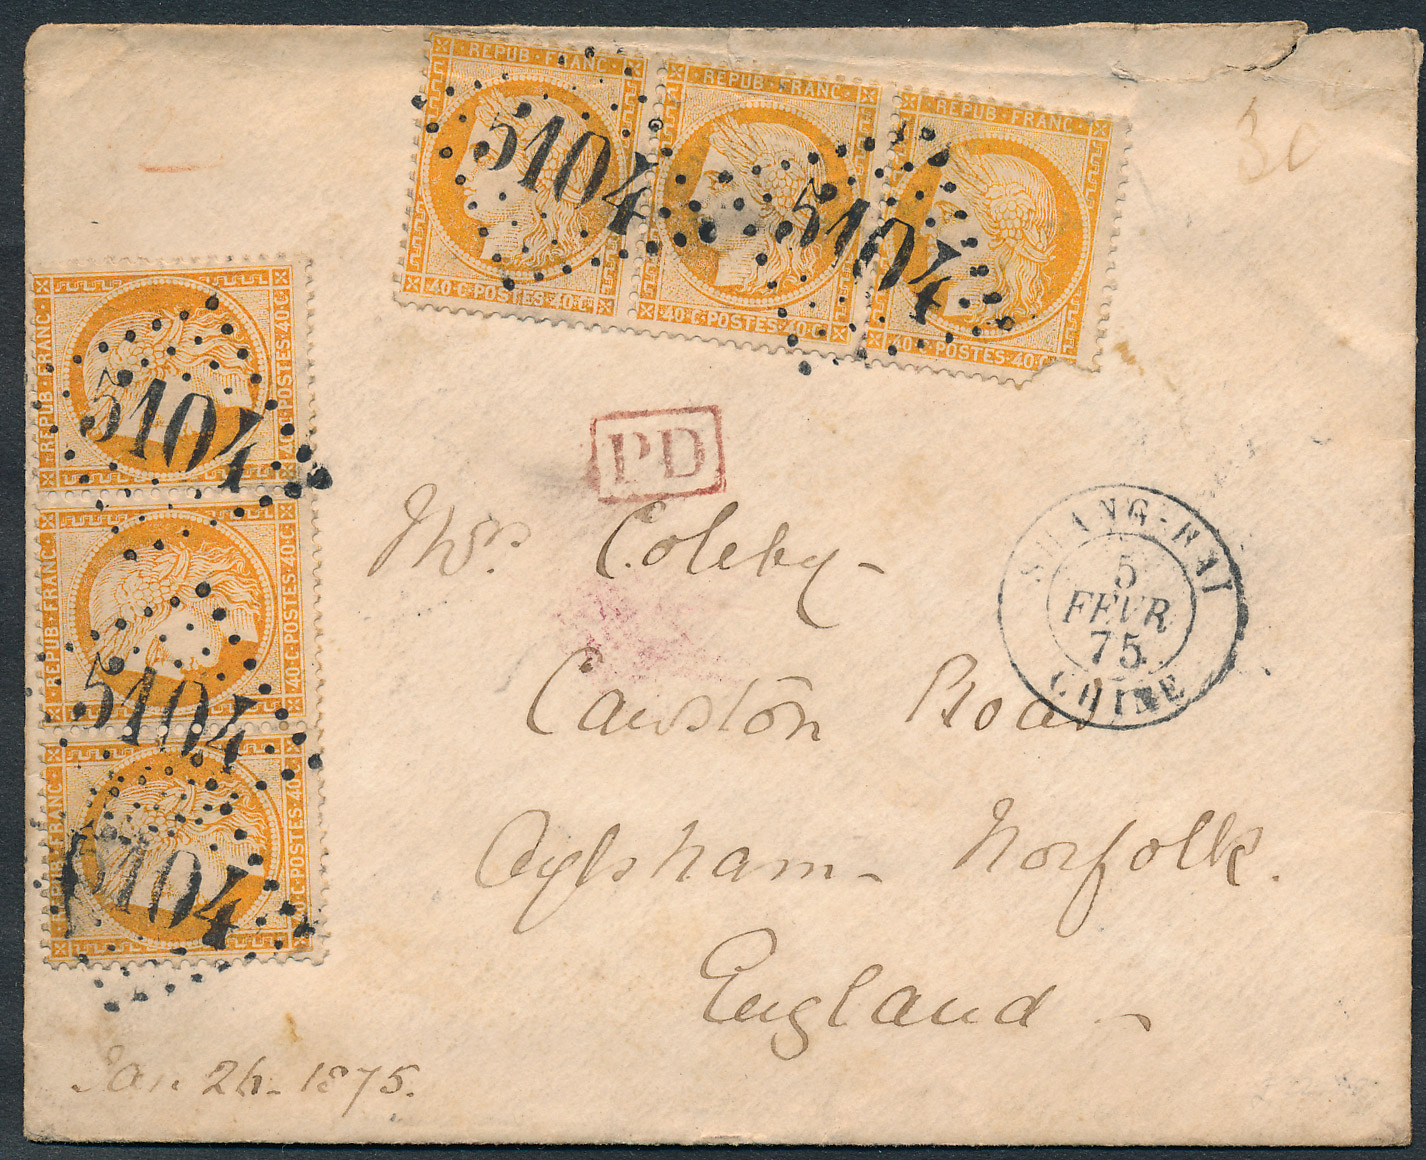 REPUB·FRANC· REPUB·FRANC· REPUB·FRANC·
5104 5104
40·C·POSTES·40·C· 40·C·POSTES·40·C· 40·C·POSTES·40·C·
30
REPUB·FRANC·
5104
40·C·POSTES·40·C·
REPUB·FRANC·
5104
40·C·POSTES·40·C·
REPUB·FRANC·
5104
40·C·POSTES·40·C·
PD
SHANG-HAI
5
FEVR
75
CHINE
Mrs. Coleby-
Cawston Road
Aylsham- Norfolk.
England-
Jan 26- 1875.